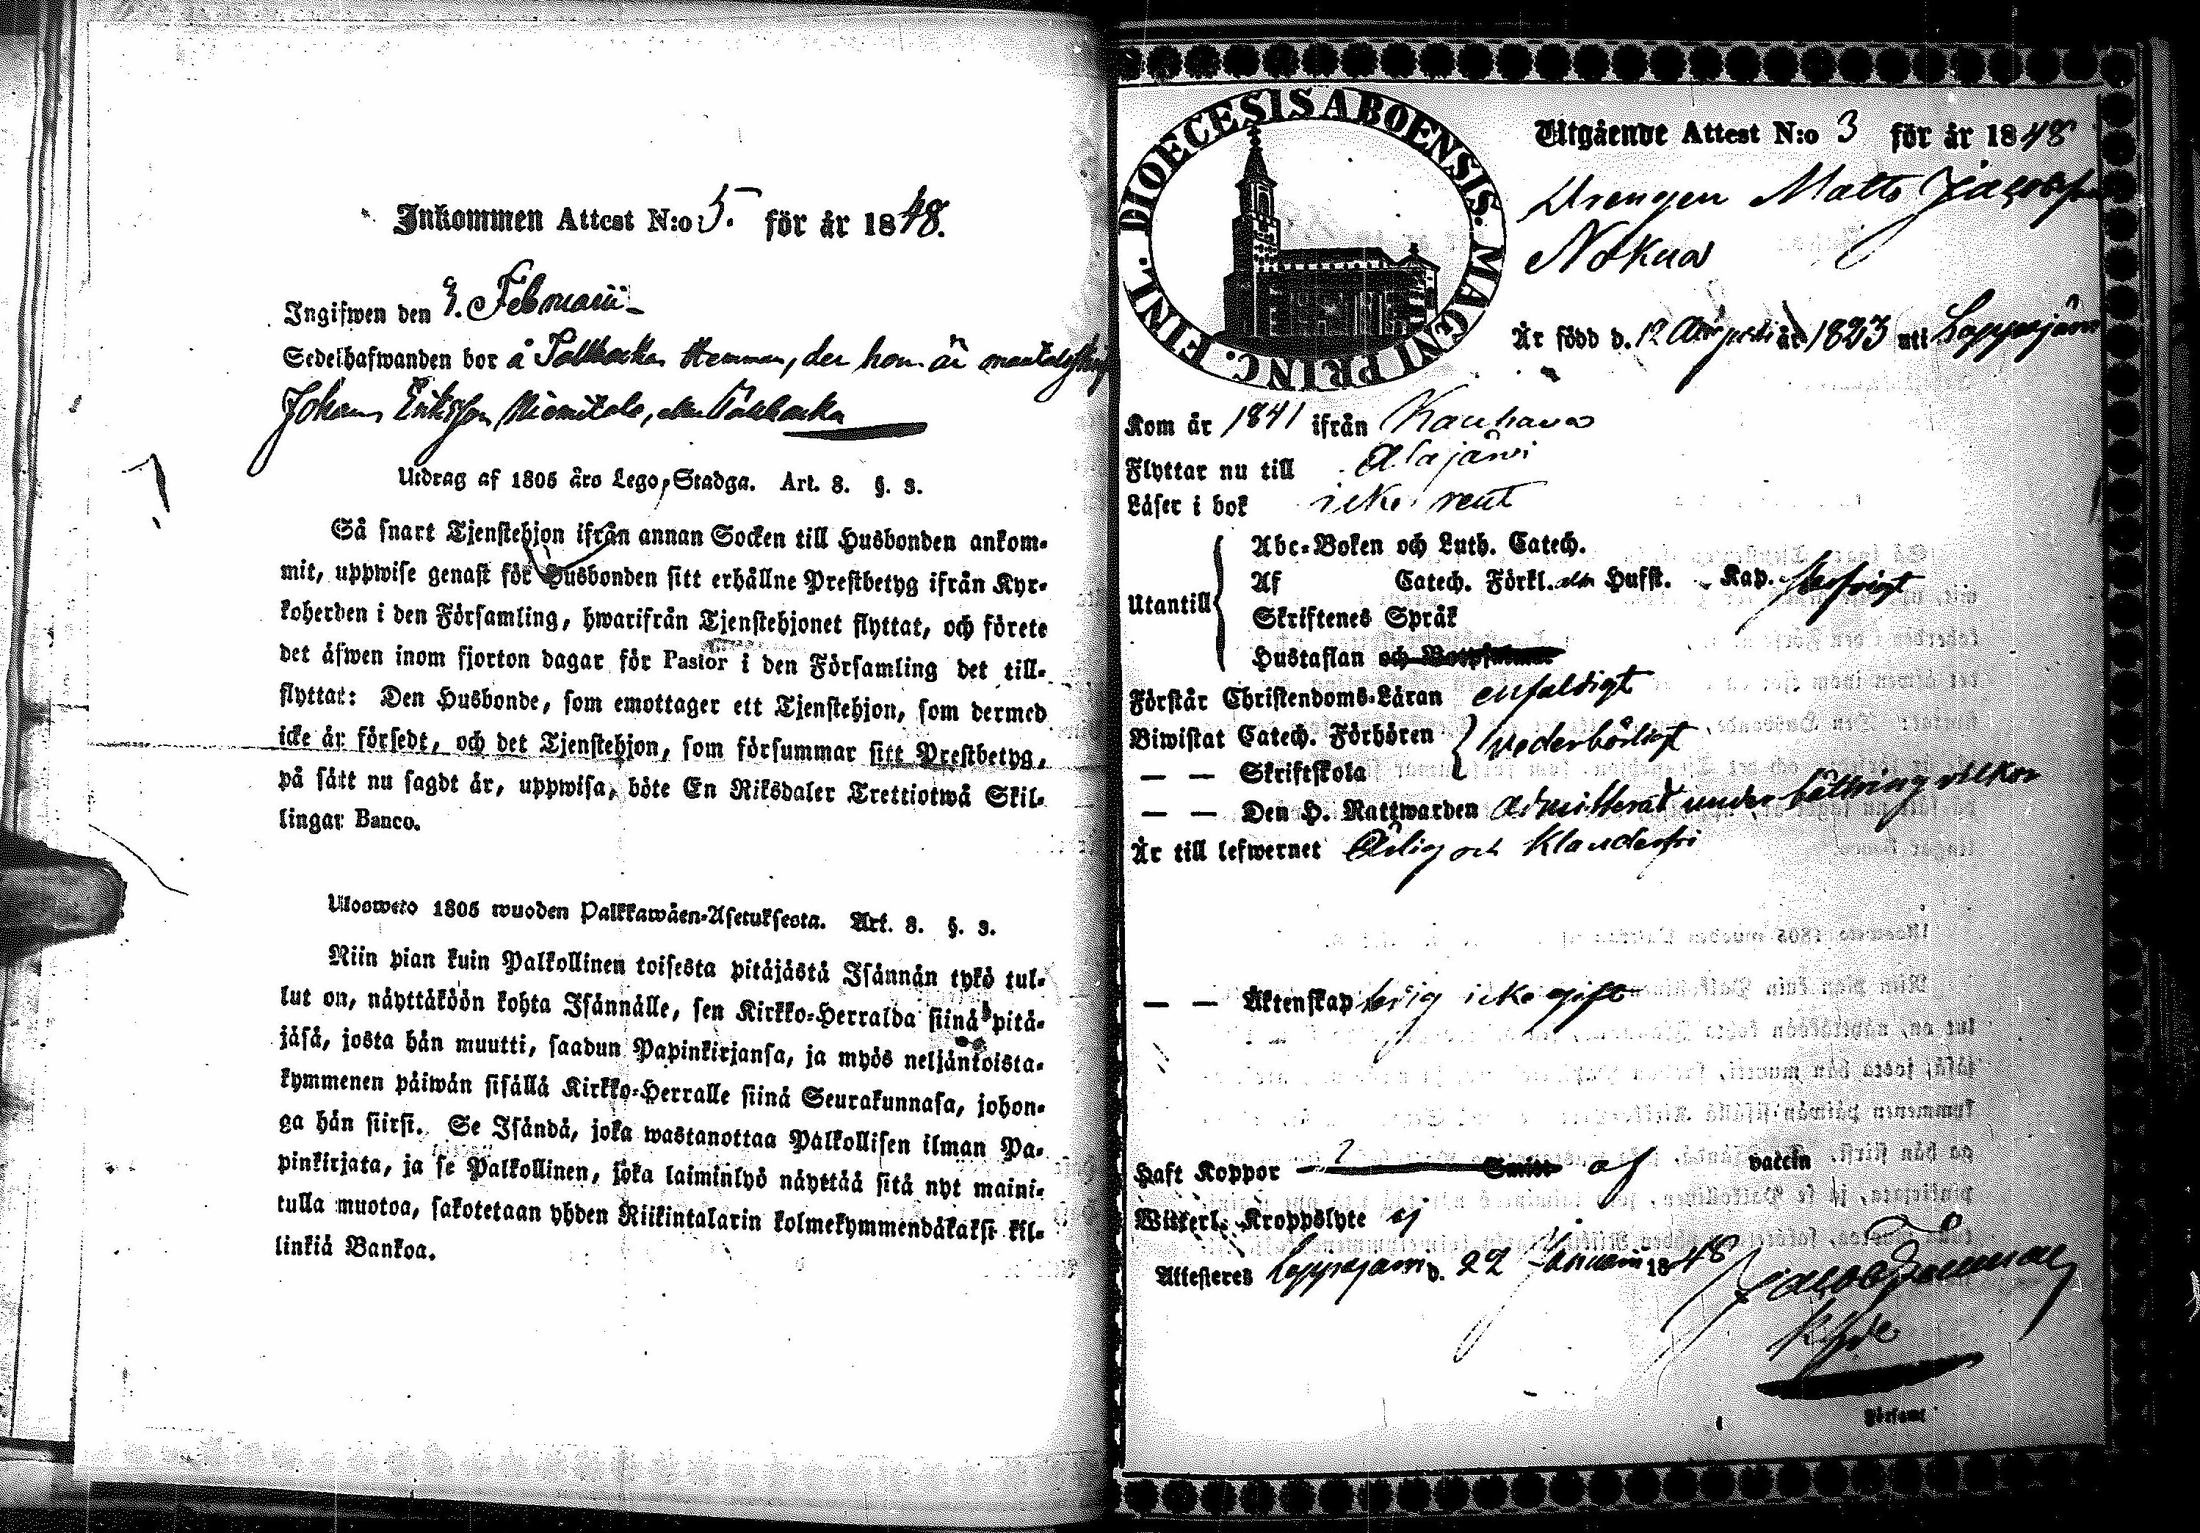 Inkommen Attest N:o 5. för år 1848.
Ingifwen den 3. Februarii
Sedelhafwanden bor å Hemman, der hon är
Johans Eriksson Niemitalo,
Utdrag af 1805 års Lego-Stadga. Art. 8. §. 3.
Så snart Tjenstehjon ifrån annan Socken till Husbonden ankom-
mit, uppwise genast för Husbonden sitt erhållne Prestbetyg ifrån Kyr-
koherden i den Församling, hwarifrån Tjenstehjonet flyttat, och förete
det äfwen inom fjorton dagar för Pastor i den Församling det till-
flyttat: Den Husbonde, som emottager ett Tjenstehjon, som dermed
icke är försedt, och det Tjenstehjon, som försummar sitt Prestbetyg,
på sätt nu sagdt är, uppwisa, böte En Riksdaler Trettiotwå Skil-
lingar Banco.
Ulosweto 1805 wuoden Palkkawäen-Asetuksesta. Art. 8. §. 3.
Niin pian kuin Palkollinen toisesta pitäjästä Isännän tykö tul-
lut on, näyttäköön kohta Isännälle, sen Kirkko-Herralda siinä pitä-
jäsä, josta hän muutti, saadun Papinkirjansa, ja myös neljäntoista-
kymmenen päiwän sisällä Kirkko-Herralle siinä Seurakunnasa, johon-
ga hän siirsi. Se Isändä, joka wastanottaa Palkollisen ilman Pa-
pinkirjata, ja se Palkollinen, joka laiminlyö näyttää sitä nyt maini-
tulla muotoa, sakotetaan yhden Riikintalarin kolmekymmendäkaksi kil-
linkiä Bankoa.
DIOECESIS ABOENSIS. MAGNI PRINC. FINL.
Utgående Attest N:o 3 för år 1848
Drengen Matts Jacobsson
Nokua
Är född d. 12 Augusti år 1823 uti Lappajärvi
Kom år 1841 ifrån Kauhava
Flyttar nu till Alajärvi
Läser i bok icke rent
Utantill
Abc-Boken och Luth. Catech.
Af Catech. Förkl. Husft. Kap.
Skriftenes Språk
Hustaflan och
Förstår Christendoms-Läran enfaldigt
Biwistat Catech. Förhören vederbörligt
— — Skriftskola
— — Den H. Nattwarden admitterad under bättring vilkor
Är till lefwernet Ärlig och klanderfri
— — Äktenskap ledig icke gift
Haft Koppor af vaccin
Witterl. Kroppslyte ej
Attesteres Lappajärvi d. 22 Januarii 1848